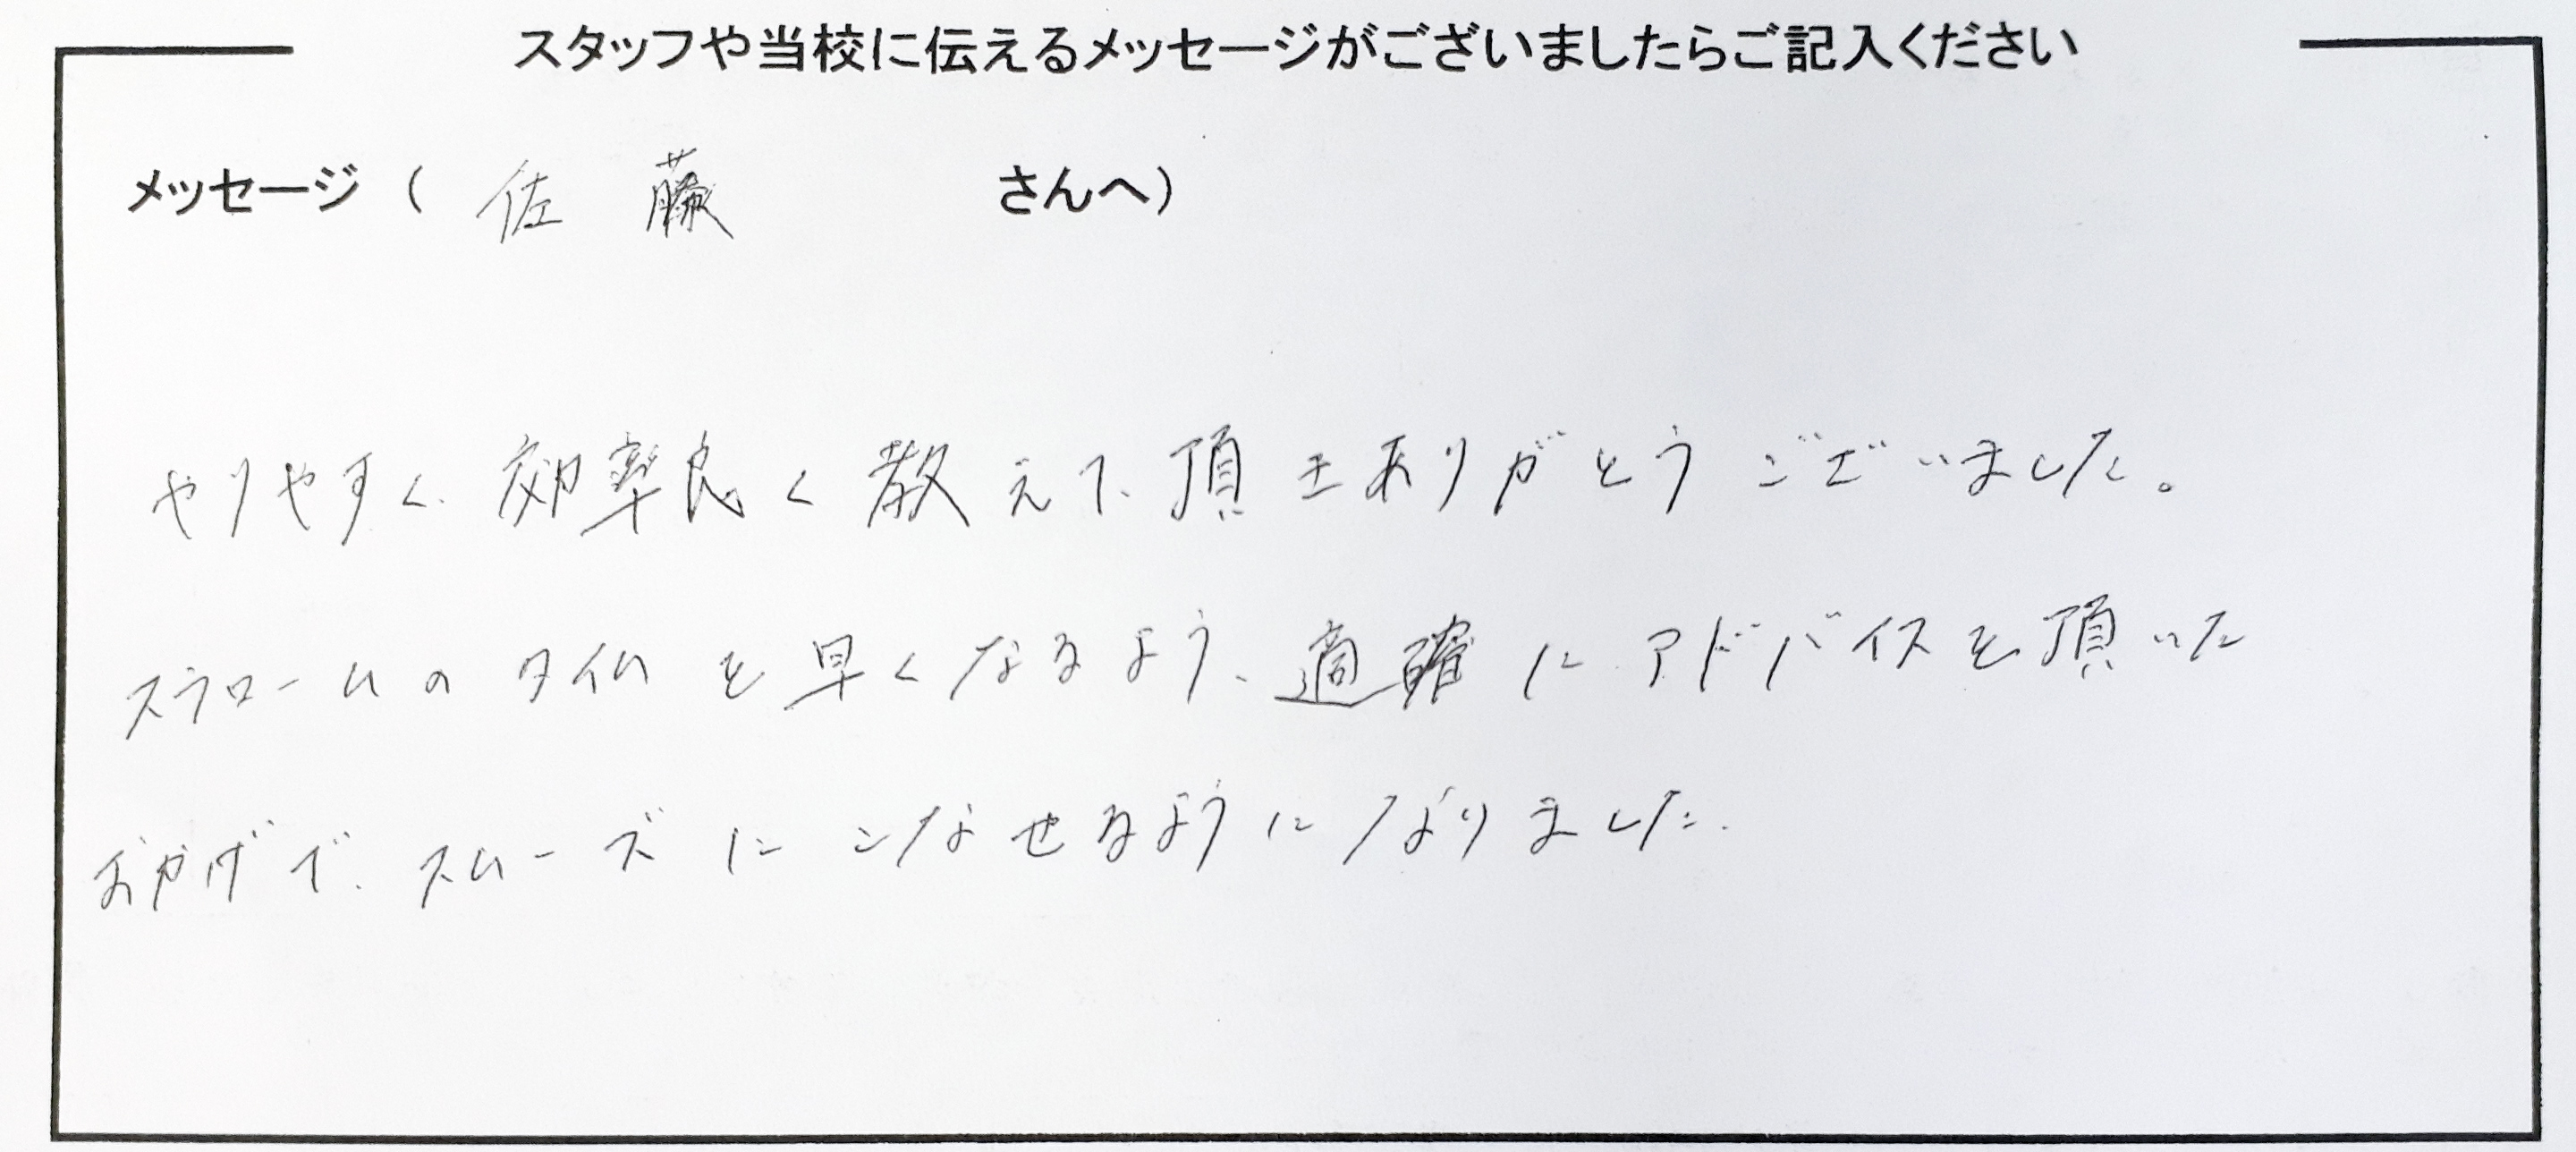 スタッフや当校に伝えるメッセージがございましたらご記入ください
メッセージ（ 佐藤 さんへ）
やりやすく、効率良く教えて、頂きありがとうございました。
スラロームのタイムを早くなるよう、適確にアドバイスを頂いた
おかげで、スムーズにこなせるようになりました.